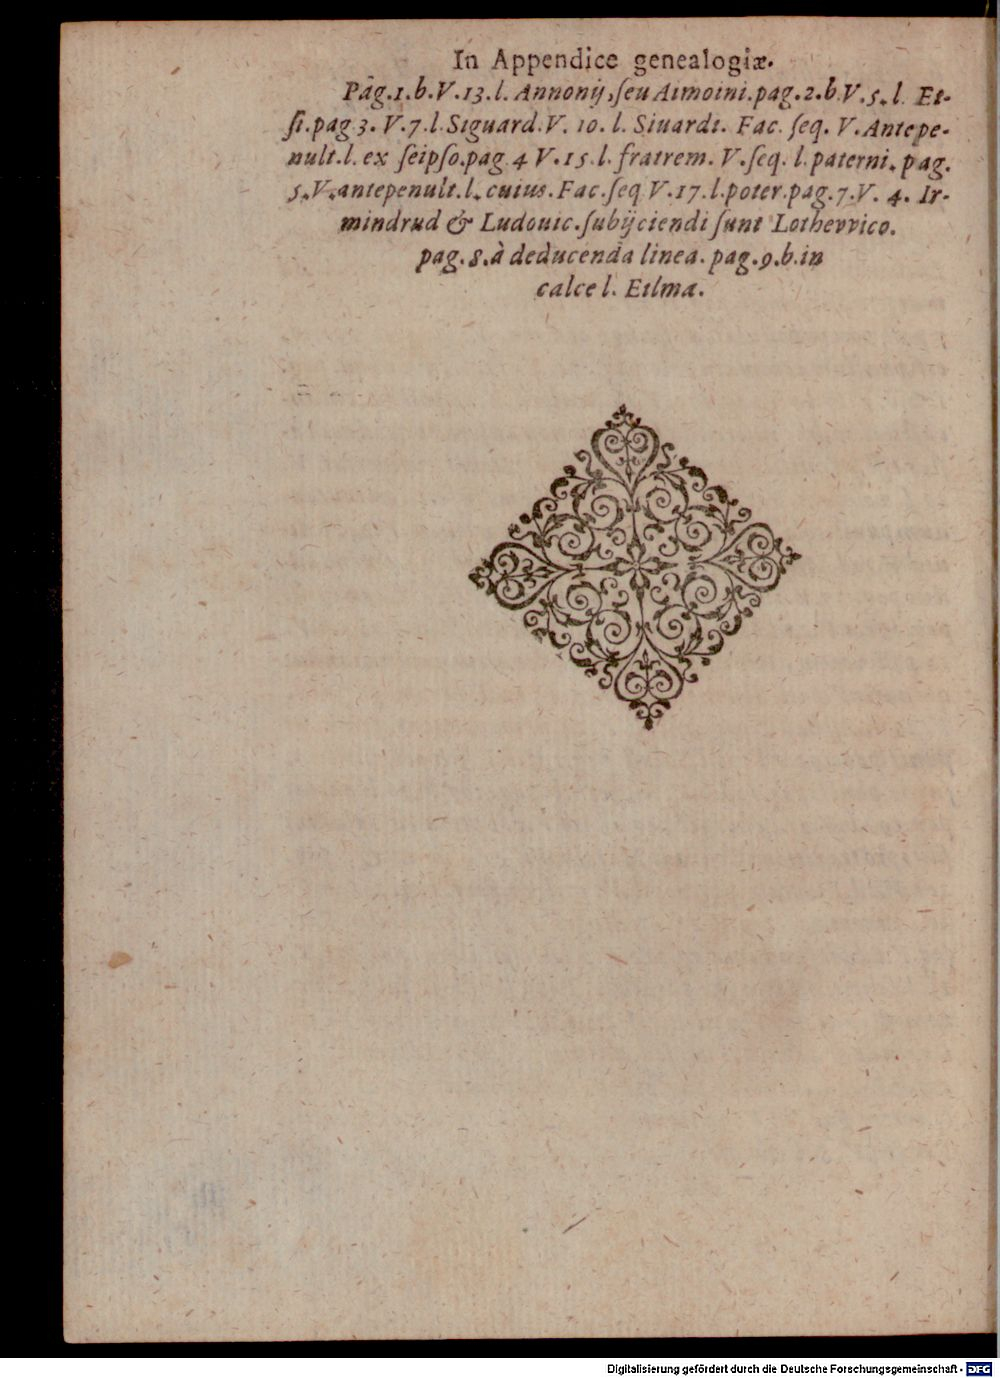 In Appendice genealogiæ.
Pag.1.b.V.13.l. Annonij, ſeu Aimoini.pag.2.b.V.5.l. Et-
ſi.pag 3. V.7.l.Siguard.V. 10. l. Siuardi. Fac. ſeq. V. Antepe-
nult.l. ex ſeipſo.pag 4 V.15.l.fratrem. V.ſeq. l.paterni.pag.
5.V.antepenult.l.cuius.Fac.ſeq V.17.l.poter.pag.7.V. 4. Ir-
mindrud & Ludouic.ſubijciendi ſunt Lothevvico.
pag.8.à deducenda linea.pag.9.b.in
calce l. Eilma.
Digitalisierung gefördert durch die Deutsche Forschungsgemeinschaft - DFG